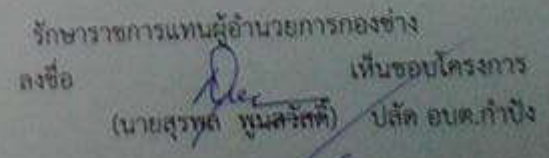 รักษาราชการแทนผู้อำนวยการกองช่าง
ลงชื่อ เห็นชอบโครงการ
(นายสุรพล พูนสวัสดิ์) ปลัด อบต.กำปัง